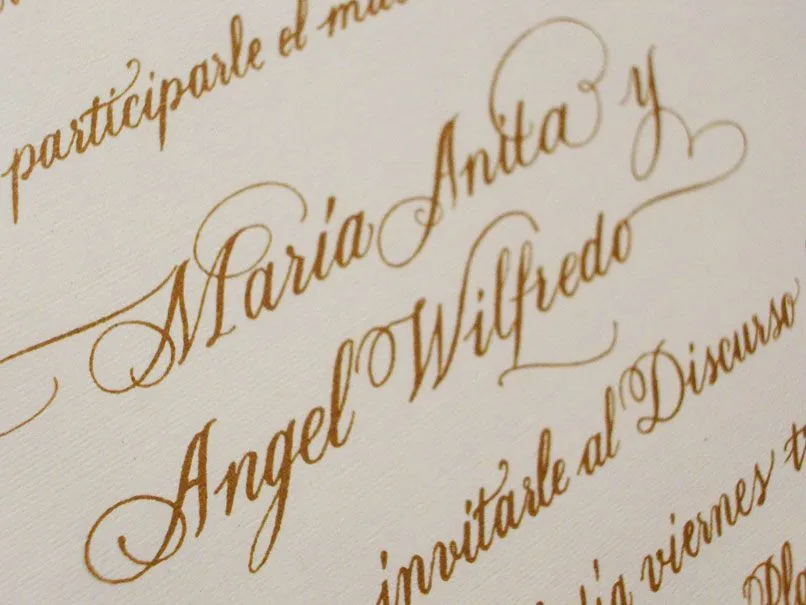 participarle el
María Anita y
Angel Wilfredo
invitarle al Discurso
viernes